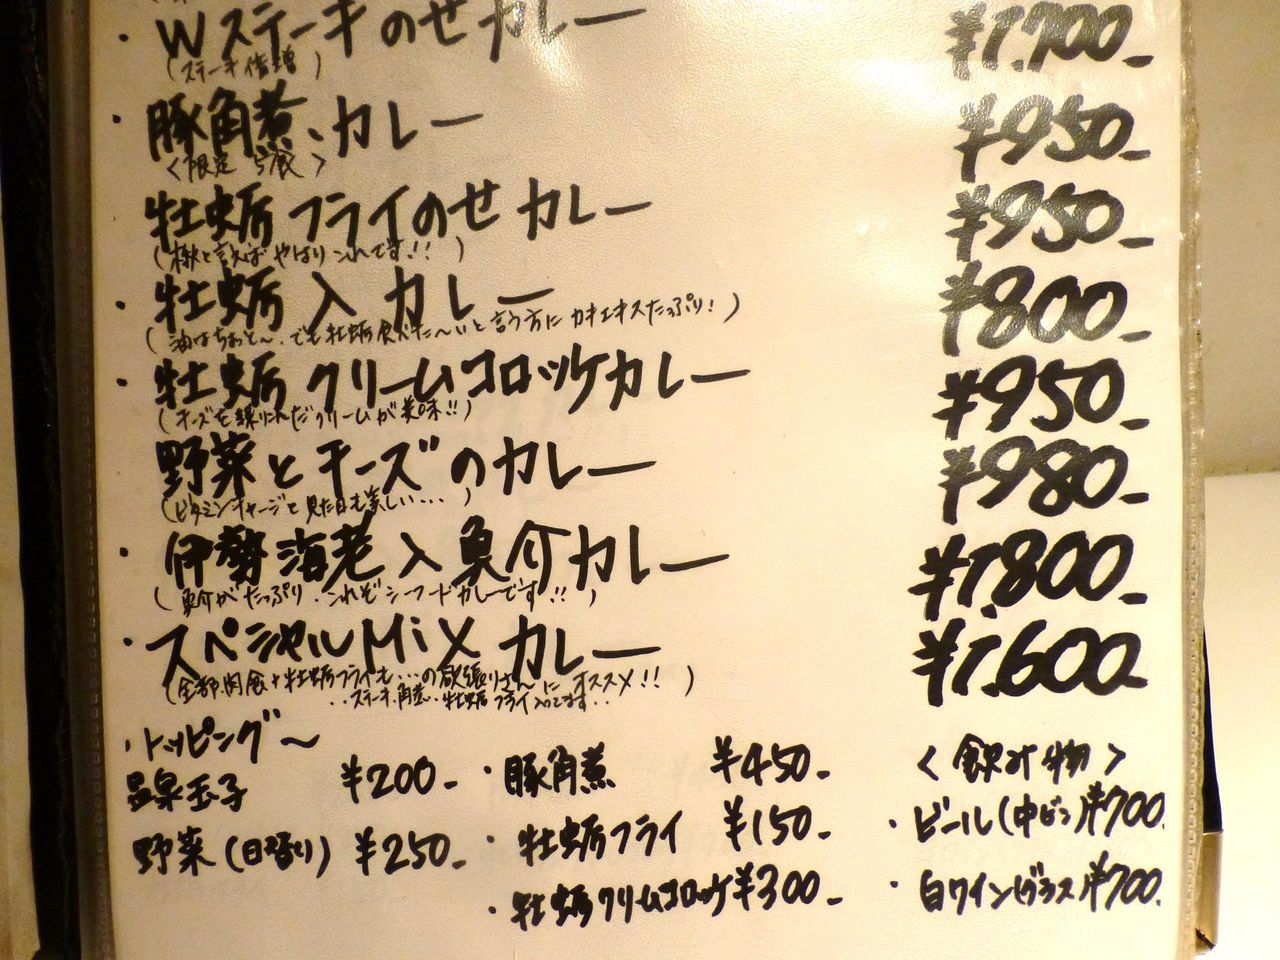 ・Wステーキのせカレー ¥1.700-
(ステーキ倍増)
・豚角煮、カレー ¥950-
〈限定 5食〉
牡蛎フライのせカレー ¥950-
(と言えばやはりこれです!!)
・牡蛎入カレー ¥800-
(油はちょっと〜、でも牡蛎食べた〜いと言う方にカキエキスたっぷり!)
・牡蛎クリームコロッケカレー ¥950-
(チーズを練りこんだクリームが美味!!)
野菜とチーズのカレー ¥980-
(ビタミンチャージと見た目も美しい・・・)
・伊勢海老入魚介カレー ¥1.800-
(魚介がたっぷり、これぞシーフードカレーです!!)
・スペシャルMiXカレー ¥1.600-
(全部肉食+牡蛎フライも・・・の欲張りさんにオススメ!!)
・・ステーキ、角煮・・牡蛎フライ入ってます・・
・トッピング〜
温泉玉子 ¥200- ・豚角煮 ¥450- 〈飲み物〉
野菜(日替り) ¥250- ・牡蛎フライ ¥150- ・ビール(中ビン)¥700.
・牡蛎クリームコロッケ¥300- ・白ワイン(グラス)¥700.